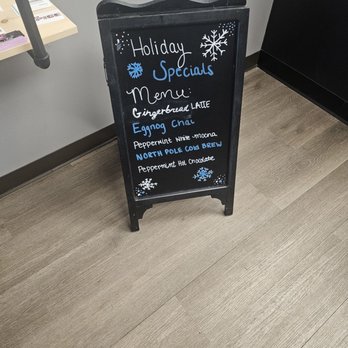 Holiday
Specials
Menu:
Gingerbread LATTE
Eggnog Chai
Peppermint White-mocha
NORTH POLE COLD BREW
Peppermint Hot Chocolate